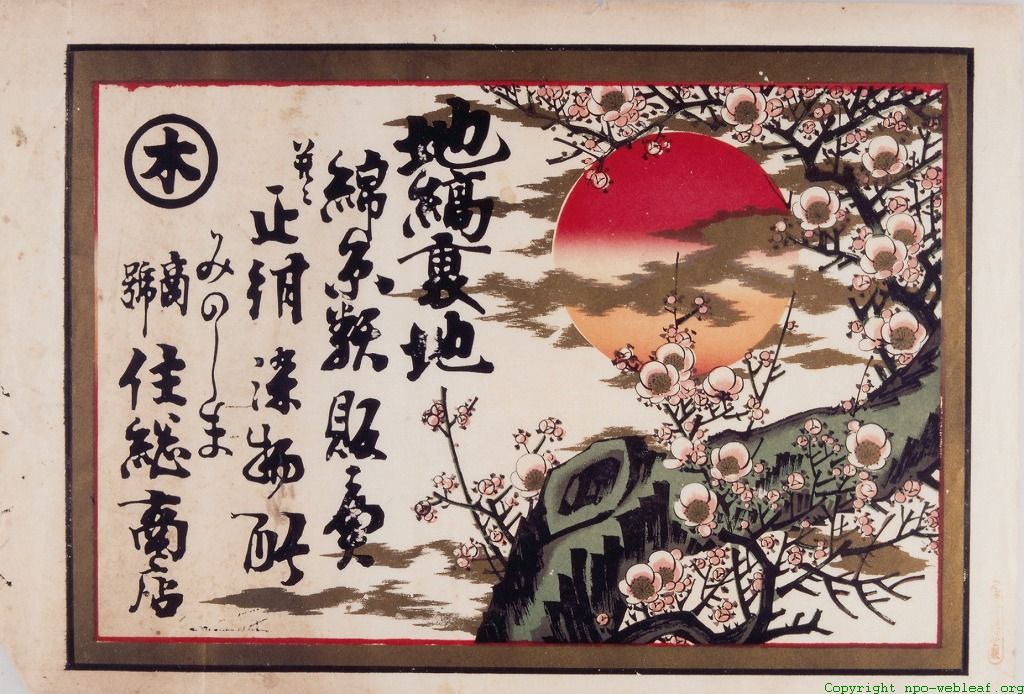 地縞裏地
綿糸類販売
並ニ
正絹染物所
みのしま
商号
住総商店
木
Copyright npo-webleaf.org